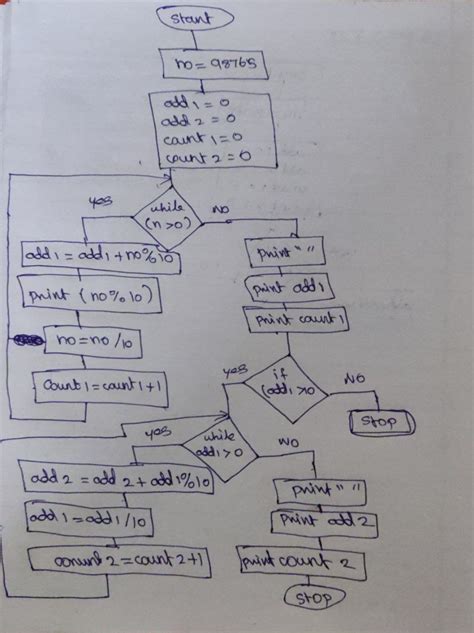 start
no = 98765
add 1 = 0
add 2 = 0
count 1 = 0
count 2 = 0
while
(n>0)
yes
NO
add 1 = add 1 + no % 10
print (no % 10)
no = no / 10
Count 1 = count 1 + 1
print " "
print add 1
print count 1
if
(add 1 > 0
yes
NO
stop
while
add 1 > 0
yes
NO
add 2 = add 2 + add 1 % 10
add 1 = add 1 / 10
conunt 2 = count 2 + 1
print " "
print add 2
print count 2
stop